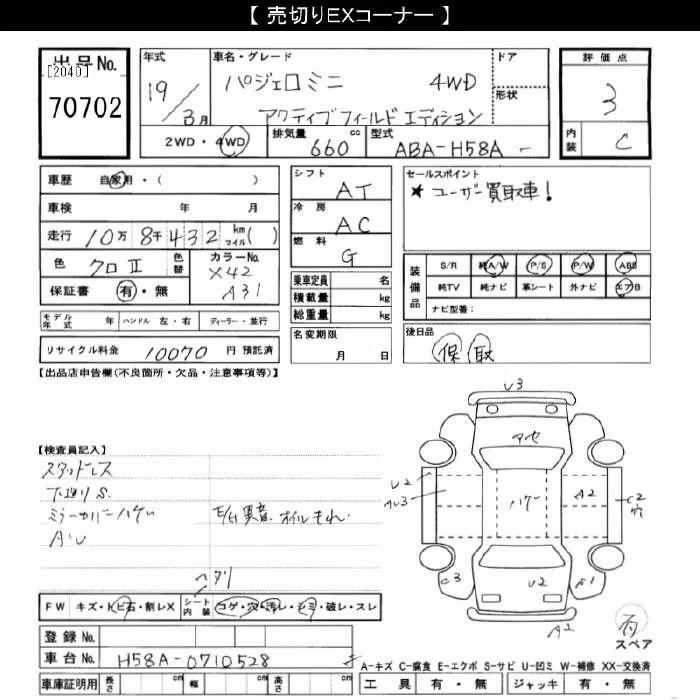 【 売切りEXコーナー 】
出品No.
[2040]
70702
年式
19／3月
車名・グレード
パジェロミニ 4WD
アクティブフィールド エディション
ドア
形状
評価点
3
内装 C
2WD・4WD
排気量 660 cc
型式 ABA-H58A-
車歴 自家用・( )
車検 年 月
走行 10万 8千432 km マイル( )
色 クロⅡ 色替
カラーNo. X42 A31
保証書 有・無
モデル年式 ハンドル 左・右 ディーラー・並行
リサイクル料金 10070 円 預託済
シフト AT
冷房 AC
燃料 G
乗車定員 名
積載量 kg
総重量 kg
名変期限 月 日
セールスポイント
★ユーザー買取車!
装備品
S/R 純A/W P/S P/W ABS
純TV 純ナビ 革シート 外ナビ エアB
ナビ型番:
後日品
保 取
【出品店申告欄(不良箇所・欠品・注意事項等)】
【検査員記入】
スタッドレス
下廻りS.
ミラーカバーハゲ
AU
E/G異音.オイルもれ.
U3
アセ
U2
ハゲ
A2
C2
穴
C3
U2
A1
A2
有
スペア
ヘタリ
FW キズ・トビ石・割レX シート内装 コゲ・穴・汚レ・シミ・破レ・スレ
登録No.
車台No. H58A-0710528
車庫証明用 長さ cm 幅 cm 高さ cm
A-キズ C-腐食 E-エクボ S-サビ U-凹ミ W-補修 XX-交換済
工具 有・無 ジャッキ 有・無